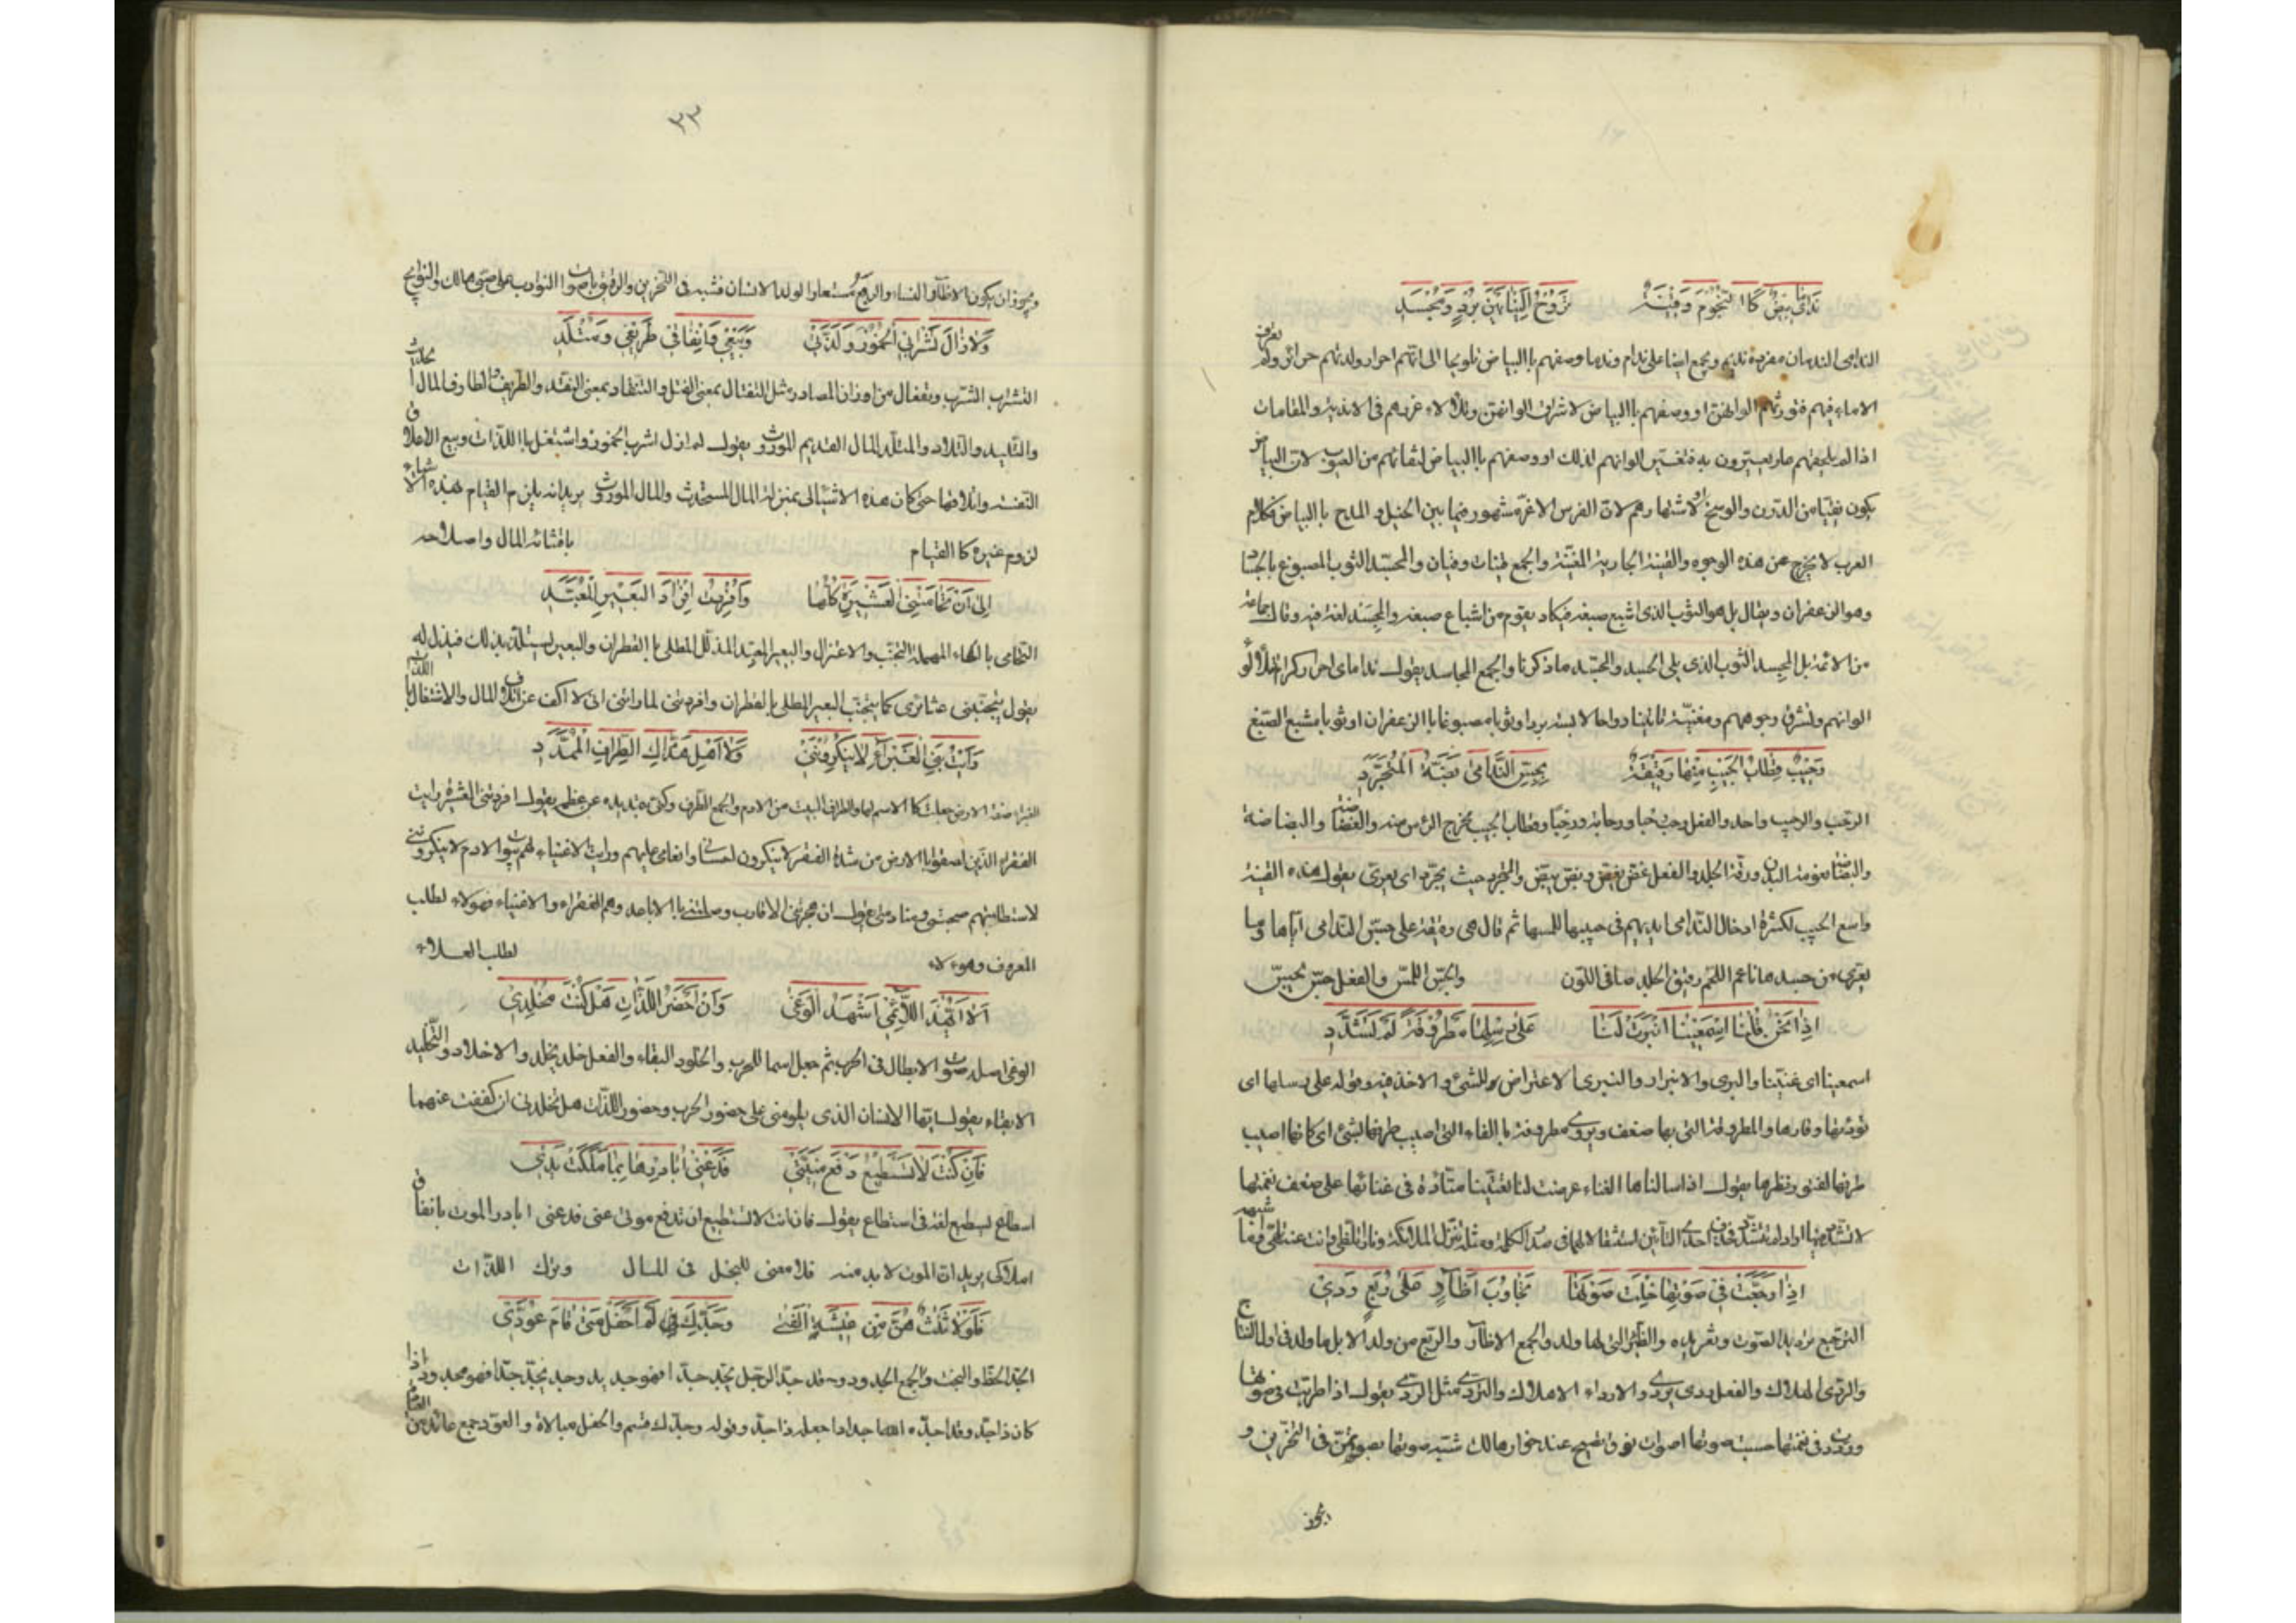 نداماي بيض كا النجوم وقينة تروح الينا بين برد ومجسد
الندامى الندمان مفرده نديم ويجمع ايضا على ندام وندما وصفهم باالبياض تلويحا الى انهم احرار ولدتهم حرائر ولم تعرف
الاماء فيهم فتورثهم الوانهن او وصفهم باالبياض لاشراق الوانهم وتلألاء غررهم فى الاندية والمقامات
اذا لم يلحقهم عار يعيرون به فتغير الوانهم لذلك او وصفهم باالبياض لنقائهم من العيوب لان البياض
يكون نقيا من الدرن والوسخ او لاشتهارهم لان الفرس الاغر مشهور فيما بين الخيل و المدح باالبياض فى كلام
العرب لا يخرج عن هذه الوجوه والقينة الجارية المغنية والجمع قينات وقيان والمجسد الثوب المصبوغ بالجساد
وهو الزعفران ويقال بل هو الثوب الذى اشبع صبغه فيكاد يقوم من اشباع صبغه والمجسد لغة فيه وقال جماعة
من الائمة بل المجسد الثوب الذى يلى الجسد والمجسد ما ذكرنا والجمع المجاسد يقول نداماى احرار كرام تتلألأ
الوانهم وتشرق وجوههم ومغنية تاتينا رواحا لابسة بردا وثوبا مصبوغا باالزعفران او ثوبا مشبع الصبغ
رحيب قطاب الجيب منها رفيقة بجس الندامى بضة المتجرد
الرحب والرحيب واحد والفعل رحب رحبا ورحابة ورحبا وقطاب الجيب مخرج الرأس منه والغضاضة والبضاضة
والبضة نعومة البدن ورقة الجلد والفعل غض يغض وبض يبض والمتجرد حيث يجرد اى يعرى يقول هذه القينة
واسع الجيب لكثرة ادخال الندامى ايديهم فى جيبها للمسها ثم قال هى رفيقة على جس الندامى اياها وما
يعرى من جسدها ناعم اللحم رقيق الجلد صافى اللون والجس اللمس والفعل جس يجس
اذا نحن قلنا اسمعينا انبرت لنا على رسلها مطروفة لم تشدد
اسمعينا اى غنينا والبرى والانبراء والتبرى الاعتراض للشئ و الاخذ فيه وقوله على رسلها اى
تؤدتها وقارها والمطروفة التى بها ضعف ويروى مطروفة باالفاء التى اصيب طرفها بشئ اى كانها اصيب
طرفها لفتور نظرها يقول اذا سالناها الغناء عرضت لنا تغنينا متئدة فى غنائها على ضعف نغمتها
لا تشدد فيها اراد لم تتشدد فحذف احدى التائين استثقالا لهما فى صدر الكلمة ومثله تنزل الملائكة ونارا تلظى وانت عنه تلهى
اذا رجعت فى صوتها خلت صوتها تجاوب اظآر على ربع ردى
الترجيع ترديد الصوت وتغريده والظئر التى لها ولد والجمع الاظآر والربع من ولد الابل ما ولد فى اول النتاج
والردى الهلاك والفعل ردى يردى والارداء الاهلاك والتردى مثل الردى يقول اذا طربت فى صوتها
ورددت فى نغمتها حسبت صوتها اصوات نوق تصيح عند حوار هالك شبه صوتها بصوتهن فى التحزين و
يجوز
٣٣
ويجوز ان يكون الاظآر النساء والربع مستعارا لولد الانسان فشبه فى التحزين والرقة باصوات النوادب على صبى هالك والنوايح
ولا زال تشرابى الخمور ولذتى وبيعى وانفاقى طريفى ومتلدى
التشراب الشرب وتفعال من اوزان المصادر مثل التقتال بمعنى القتل والتنقاد بمعنى النقد والطريف والطارف المال المحدث
والتليد والتلاد والمتلد المال القديم الموروث يقول لم ازل اشرب الخمور واشتغل باللذات وبيع الاعلاق
النفسة واتلافها حتى كان هذه الاشيا لى بمنزلة المال المستحدث والمال الموروث يريد انه يلزم القيام بهذه الاشياء
لزوم غيره كا القيام باقتنائه المال واصلاحه
الى ان تحامتنى العشيرة كلها وافردت افراد البعير المعبد
التحامى باالحاء المهملة التجنب والاعتزال والبعير المعبد المذلل المطلى باالقطران والبعير يستلذ بذلك فيذل له
يقول تجنبتنى عشائرى كما يتجنب البعير المطلى باالقطران وافردتنى لما راتنى انى لا اكف عن اتلاف المال والاشتغال باللذات
رايت بنى الغبراء لا ينكروننى ولا اهل هذاك الطراف الممدد
الغبراء صفة الارض جعلت كا الاسم لها والطراف البيت من الادم والجمع الطرف وكنى بتمديده عن عظمه يقول افردتنى العشيرة رايت
الفقراء الذين لصقوا باالارض من شدة الفقر لا ينكرون احسانى وانعامى عليهم ورايت الاغنياء لهم بيوت الادم لا ينكروننى
لاستطابتهم صحبتى ومنادمتى يقول ان هجرتنى الاقارب وصلتنى باالاباعد وهم الفقراء والاغنياء فهولاء لطلب
المعروف وهوءلاء لطلب العلاء
الا ايهذا اللائمى اشهد الوغى وان احضر اللذات هل كنت مخلدى
الوغى اصله صوت الابطال فى الحرب ثم جعل اسما للحرب والخلود البقاء والفعل خلد يخلد والاخلاد والتخليد
الابقاء يقول ايها الانسان الذى يلومنى على حضور الحرب وحضور اللذات هل تخلدنى ان كففت عنهما
فان كنت لا تسطيع دفع منيتى فدعنى ابادرها بما ملكت يدى
اسطاع يسطيع لغة فى استطاع يقول فان كنت لا تستطيع ان تدفع موتى عنى فدعنى ابادر الموت بانفاق
املاكى يريد ان الموت لابد منه فلا معنى للبخل فى المال وترك اللذات
فلولا ثلث هن من عيشة الفتى وجدك لم احفل متى قام عودى
الجد الحظ والبخت والجمع الجدود وقد جد الرجل يجد جدا فهو جديد وجد يجد جدا فهو مجدود اذا
كان ذا جد وقد اجده الله اجدادا جعله ذا جد وقوله وجدك قسم والحفل مبالاة والعود جمع عائد من